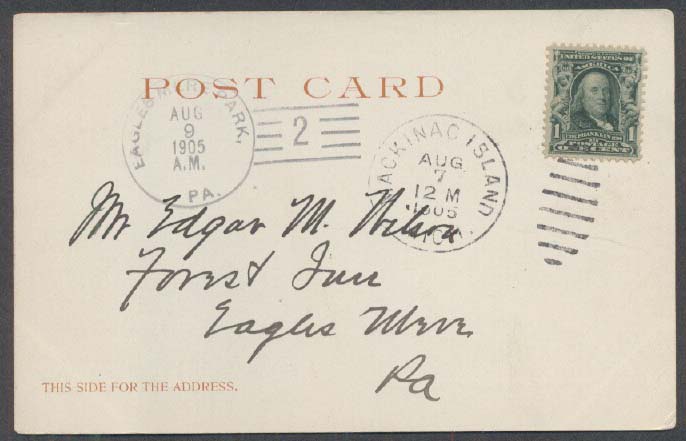 POST CARD
EAGLES MERE PARK,
AUG
9
1905
A.M.
PA.
2
MACKINAC ISLAND
AUG
7
12 M
1905
MICH.
UNITED STATES OF
AMERICA
1 1
FRANKLIN
POSTAGE
ONE CENT
Mr Edgar M. Wilson
Forest Inn
Eagles Mere
Pa
THIS SIDE FOR THE ADDRESS.